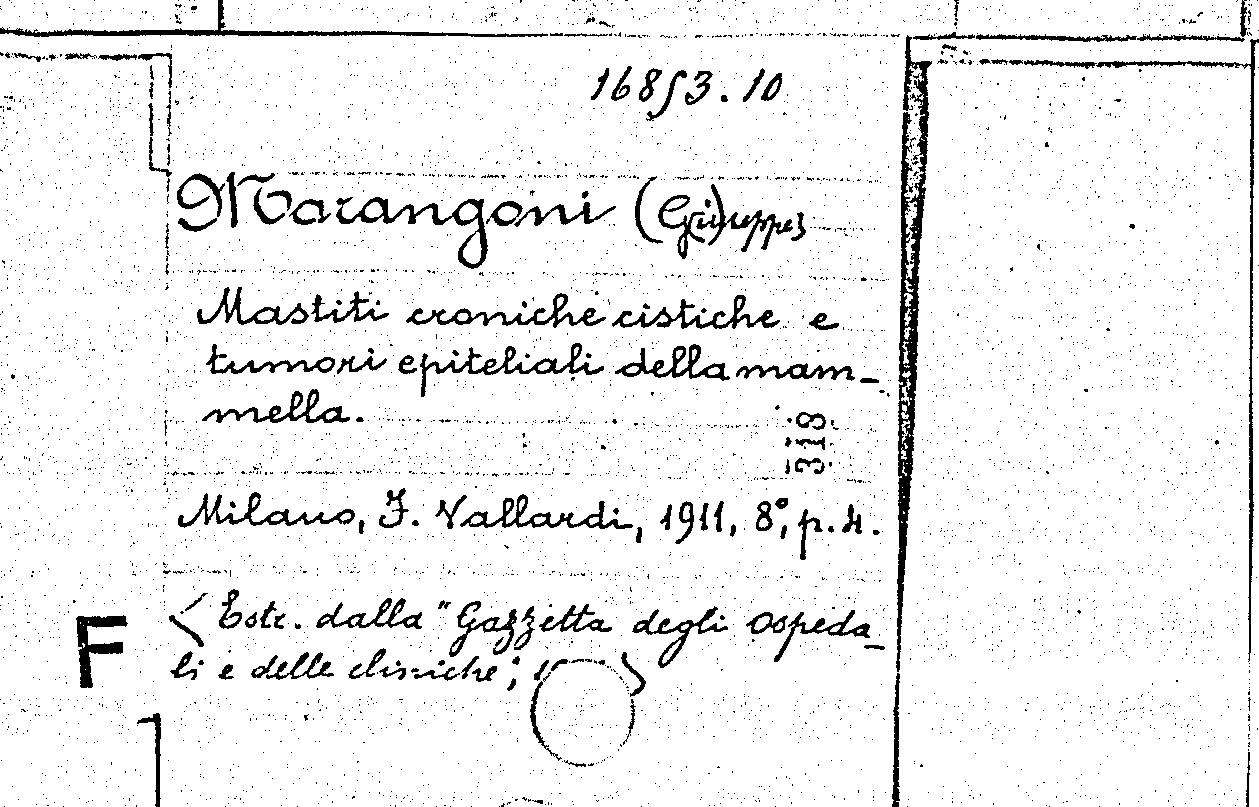 16853.10
Marangoni (Giuseppe)
Mastiti croniche cistiche e
tumori epiteliali della mam-
mella.
318
Milano, F. Vallardi, 1911, 8°, p. 4.
F
< Estr. dalla "Gazzetta degli Ospeda-
li e delle cliniche",